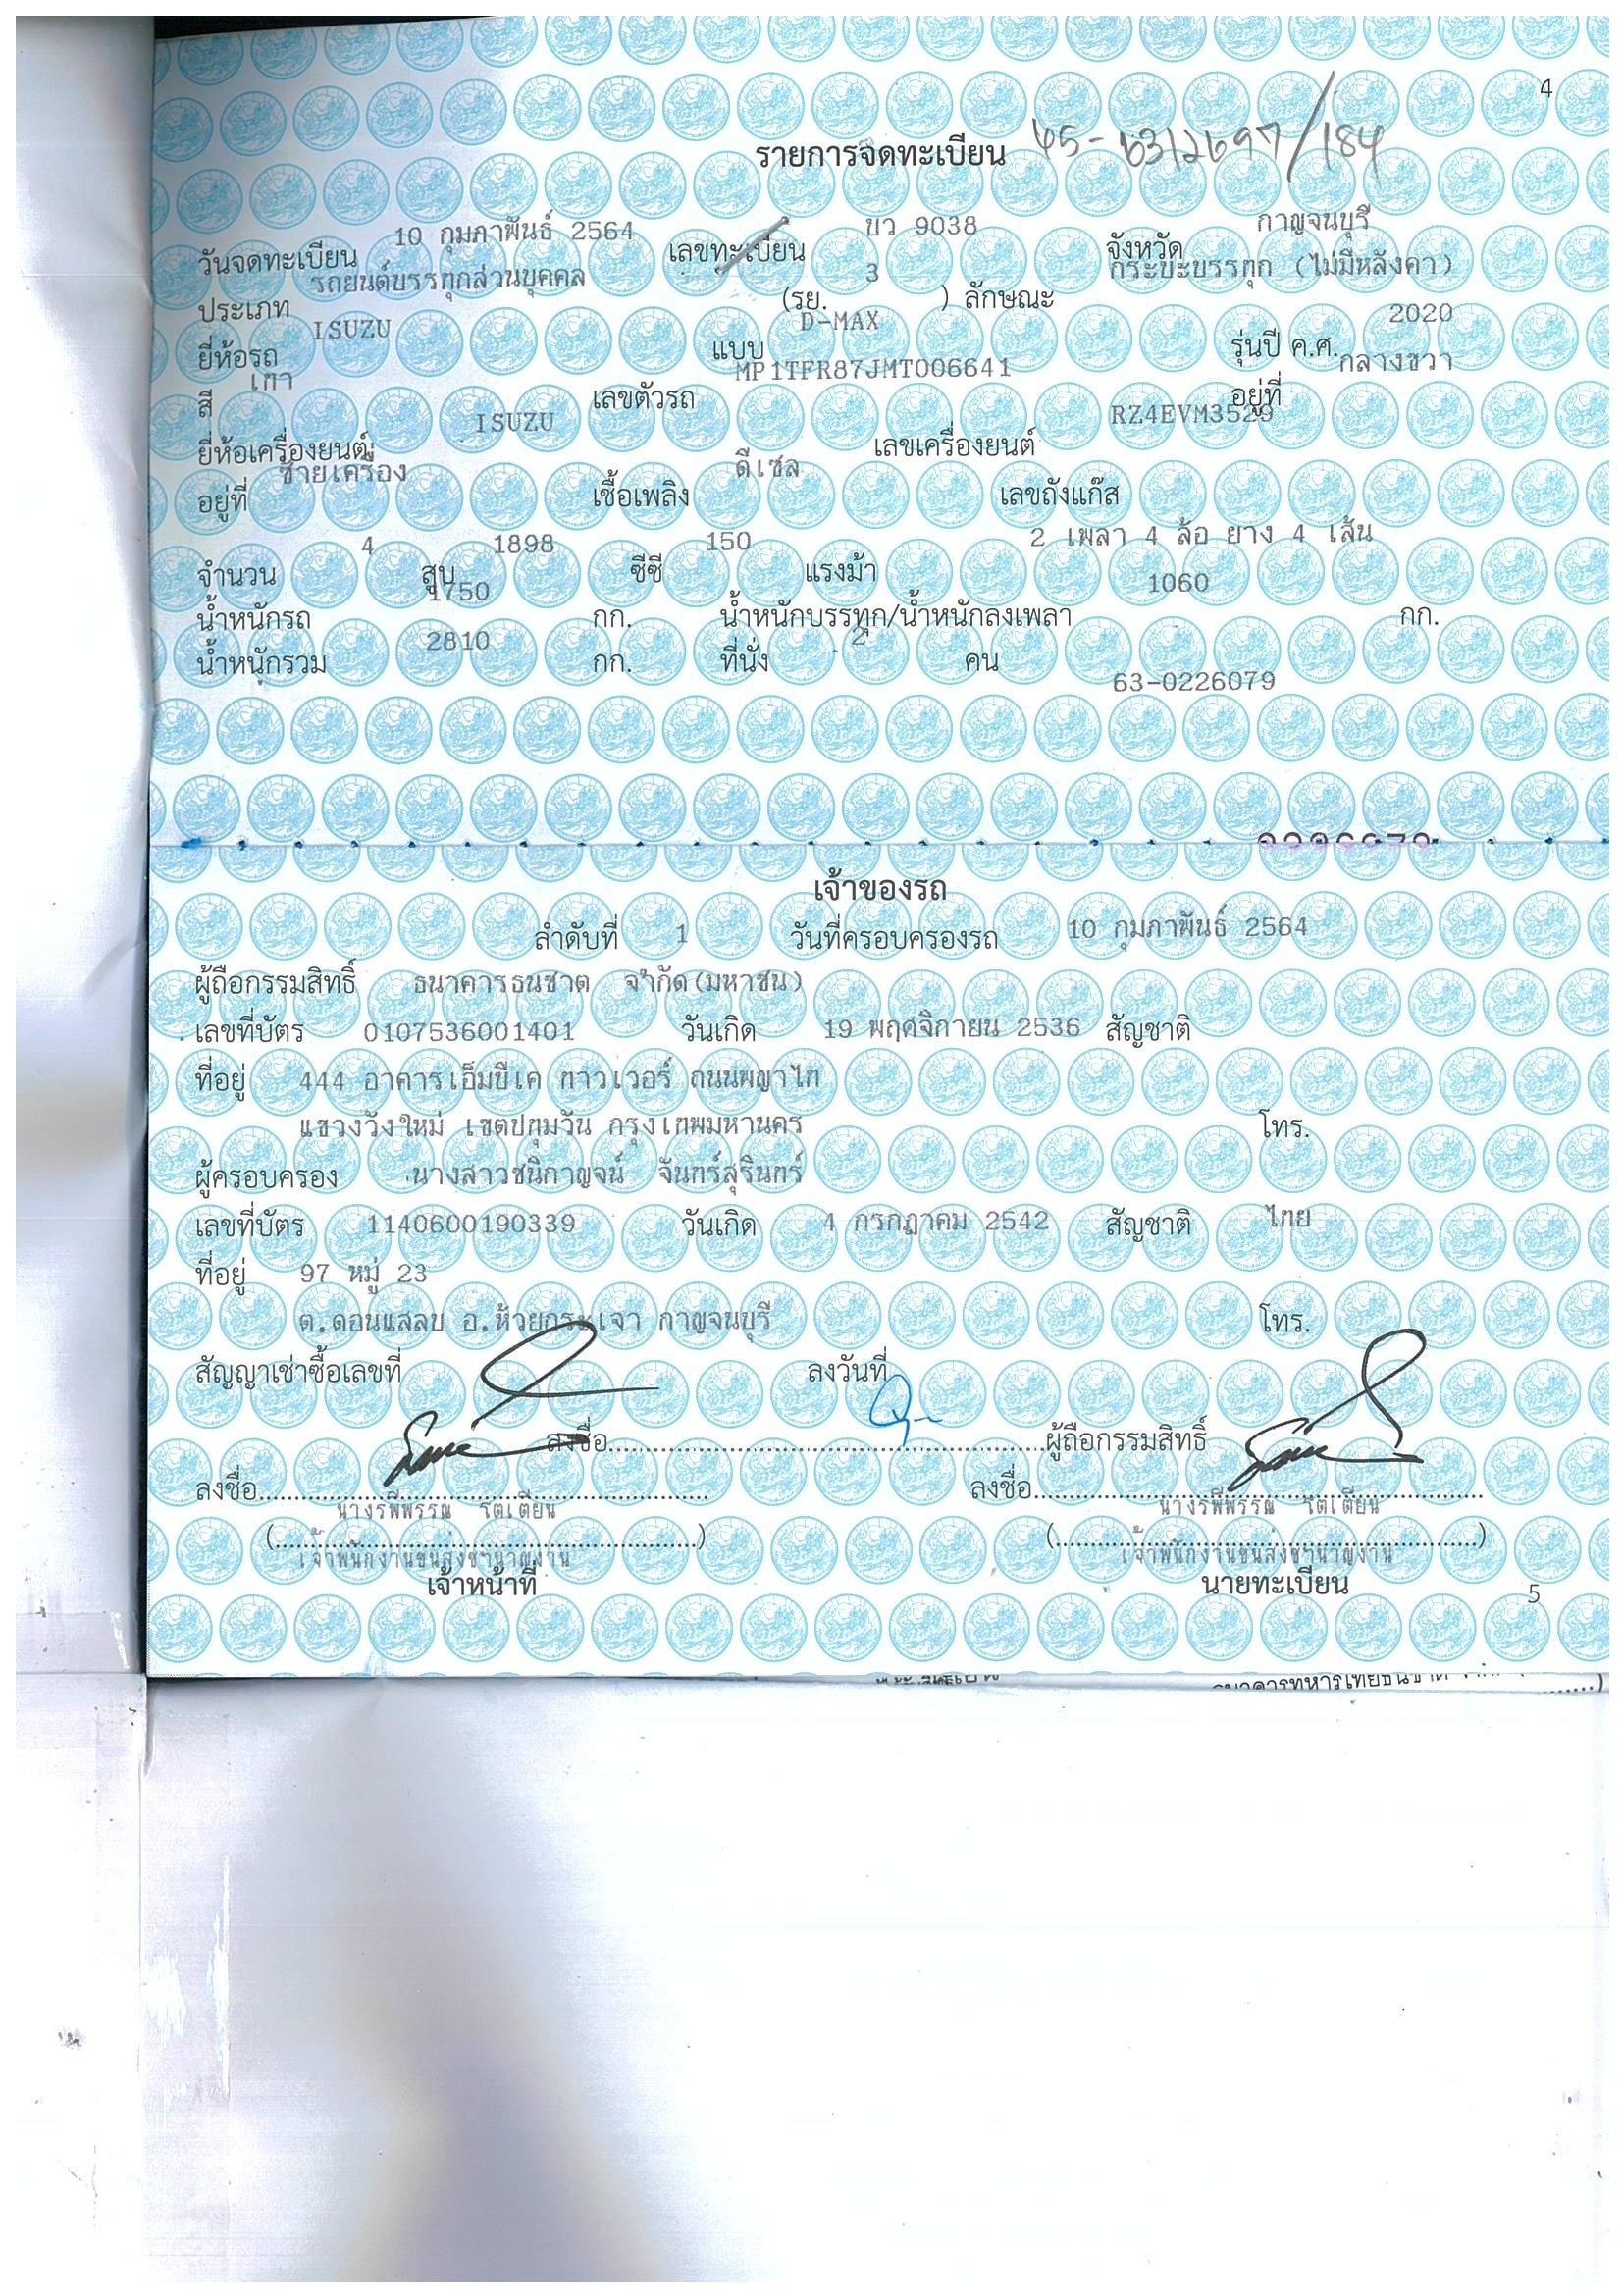 4
รายการจดทะเบียน
วันจดทะเบียน 10 กุมภาพันธ์ 2564 เลขทะเบียน บว 9038 จังหวัด กาญจนบุรี
ประเภท รถยนต์บรรทุกส่วนบุคคล (รย. 3 ) ลักษณะ กระบะบรรทุก (ไม่มีหลังคา)
ยี่ห้อรถ ISUZU แบบ D-MAX รุ่นปี ค.ศ. 2020
สี เทา เลขตัวรถ MP1TFR87JMT006641 อยู่ที่ กลางขวา
ยี่ห้อเครื่องยนต์ ISUZU เลขเครื่องยนต์ RZ4EVM3529
อยู่ที่ ซ้ายเครื่อง เชื้อเพลิง ดีเซล เลขถังแก๊ส
จำนวน 4 สูบ 1898 ซีซี 150 แรงม้า 2 เพลา 4 ล้อ ยาง 4 เส้น
น้ำหนักรถ 1750 กก. น้ำหนักบรรทุก/น้ำหนักลงเพลา 1060 กก.
น้ำหนักรวม 2810 กก. ที่นั่ง 2 คน
63-0226079
เจ้าของรถ
ลำดับที่ 1 วันที่ครอบครองรถ 10 กุมภาพันธ์ 2564
ผู้ถือกรรมสิทธิ์ ธนาคารธนชาต จำกัด(มหาชน)
เลขที่บัตร 0107536001401 วันเกิด 19 พฤศจิกายน 2536 สัญชาติ
ที่อยู่ 444 อาคารเอ็มบีเค ทาวเวอร์ ถนนพญาไท
แขวงวังใหม่ เขตปทุมวัน กรุงเทพมหานคร โทร.
ผู้ครอบครอง นางสาวชนิกาญจน์ จันทร์สุรินทร์
เลขที่บัตร 1140600190339 วันเกิด 4 กรกฎาคม 2542 สัญชาติ ไทย
ที่อยู่ 97 หมู่ 23
ต.ดอนแสลบ อ.ห้วยกระเจา กาญจนบุรี โทร.
สัญญาเช่าซื้อเลขที่ ลงวันที่
ลงชื่อ ผู้ถือกรรมสิทธิ์
ลงชื่อ ลงชื่อ
นางรพีพรรณ โตเตียน นางรพีพรรณ โตเตียน
เจ้าพนักงานขนส่งชำนาญงาน เจ้าพนักงานขนส่งชำนาญงาน
เจ้าหน้าที่ นายทะเบียน
5